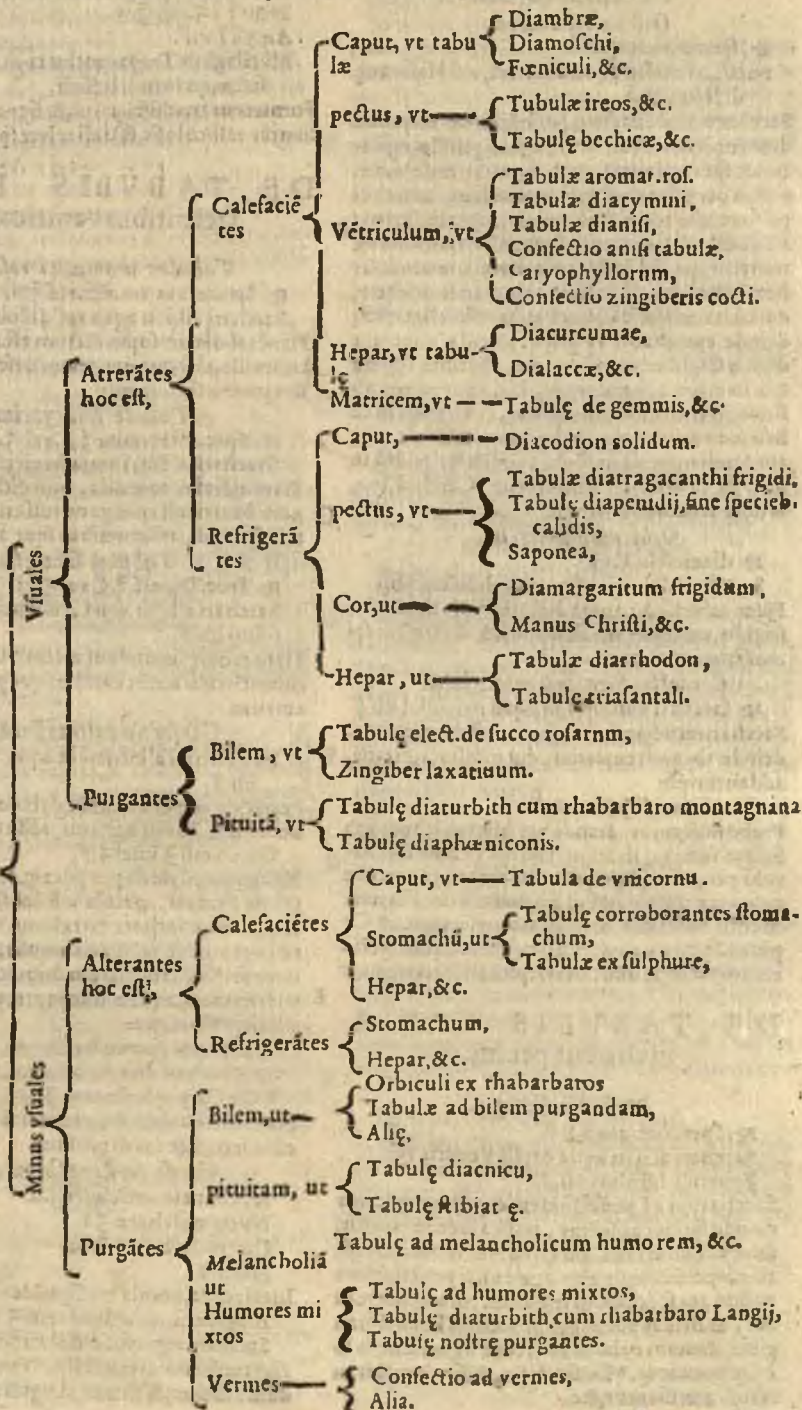 Diambræ,
Caput, vt tabu
læ
Diamoſchi,
Fœniculi,&c.
pectus, vt
Tubulæ ireos,&c.
Tabulę bechicæ,&c.
Calefaciē
tes
Vētriculum, vt
Tabulæ aromat.roſ.
Tabulæ diacymini,
Tabulæ dianiſi,
Confectio aniſi tabulæ,
Caryophyllornm,
Confectio zingiberis cocti.
Atrerātes
hoc eſt,
Hepar, vt tabu-
lę
Diacurcumae,
Dialaccæ,&c.
Matricem, vt
Tabulę de gemmis,&c.
Caput,
Diacodion solidum.
Refrigerā
tes
pectus, vt
Tabulæ diatragacanthi frigidi,
Tabulę diapenidij, ſine ſpecieb.
calidis,
Saponea,
Cor,ut
Diamargaritum frigidum,
Manus Chriſti,&c.
Hepar, ut
Tabulæ diarrhodon,
Tabulę triaſantali.
Vſuales
Purgantes
Bilem, vt
Tabulę elect.de ſucco roſarnm,
Zingiber laxatiuum.
Pituitā, vt
Tabulę diaturbith cum rhabarbaro montagnana
Tabulę diaphœniconis.
Caput, vt
Tabula de vnicornu.
Calefaciētes
Stomachū,ut
Tabulę corroborantes ſtoma-
chum,
Tabulæ ex ſulphure,
Hepar,&c.
Alterantes
hoc eſt,
Refrigerātes
Stomachum,
Hepar,&c.
Minus vſuales
Bilem,ut
Orbiculi ex rhabarbaros
Tabulæ ad bilem purgandam,
Alię,
pituitam, ut
Tabulę diacnicu,
Tabulę ſtibiat ę.
Purgātes
Melancholiā
ut
Tabulę ad melancholicum humorem, &c.
Humores mi
xtos
Tabulę ad humores mixtos,
Tabulę diaturbith,cum rhabarbaro Langij,
Tabulę noſtrę purgantes.
Vermes
Confectio ad vermes,
Alia.